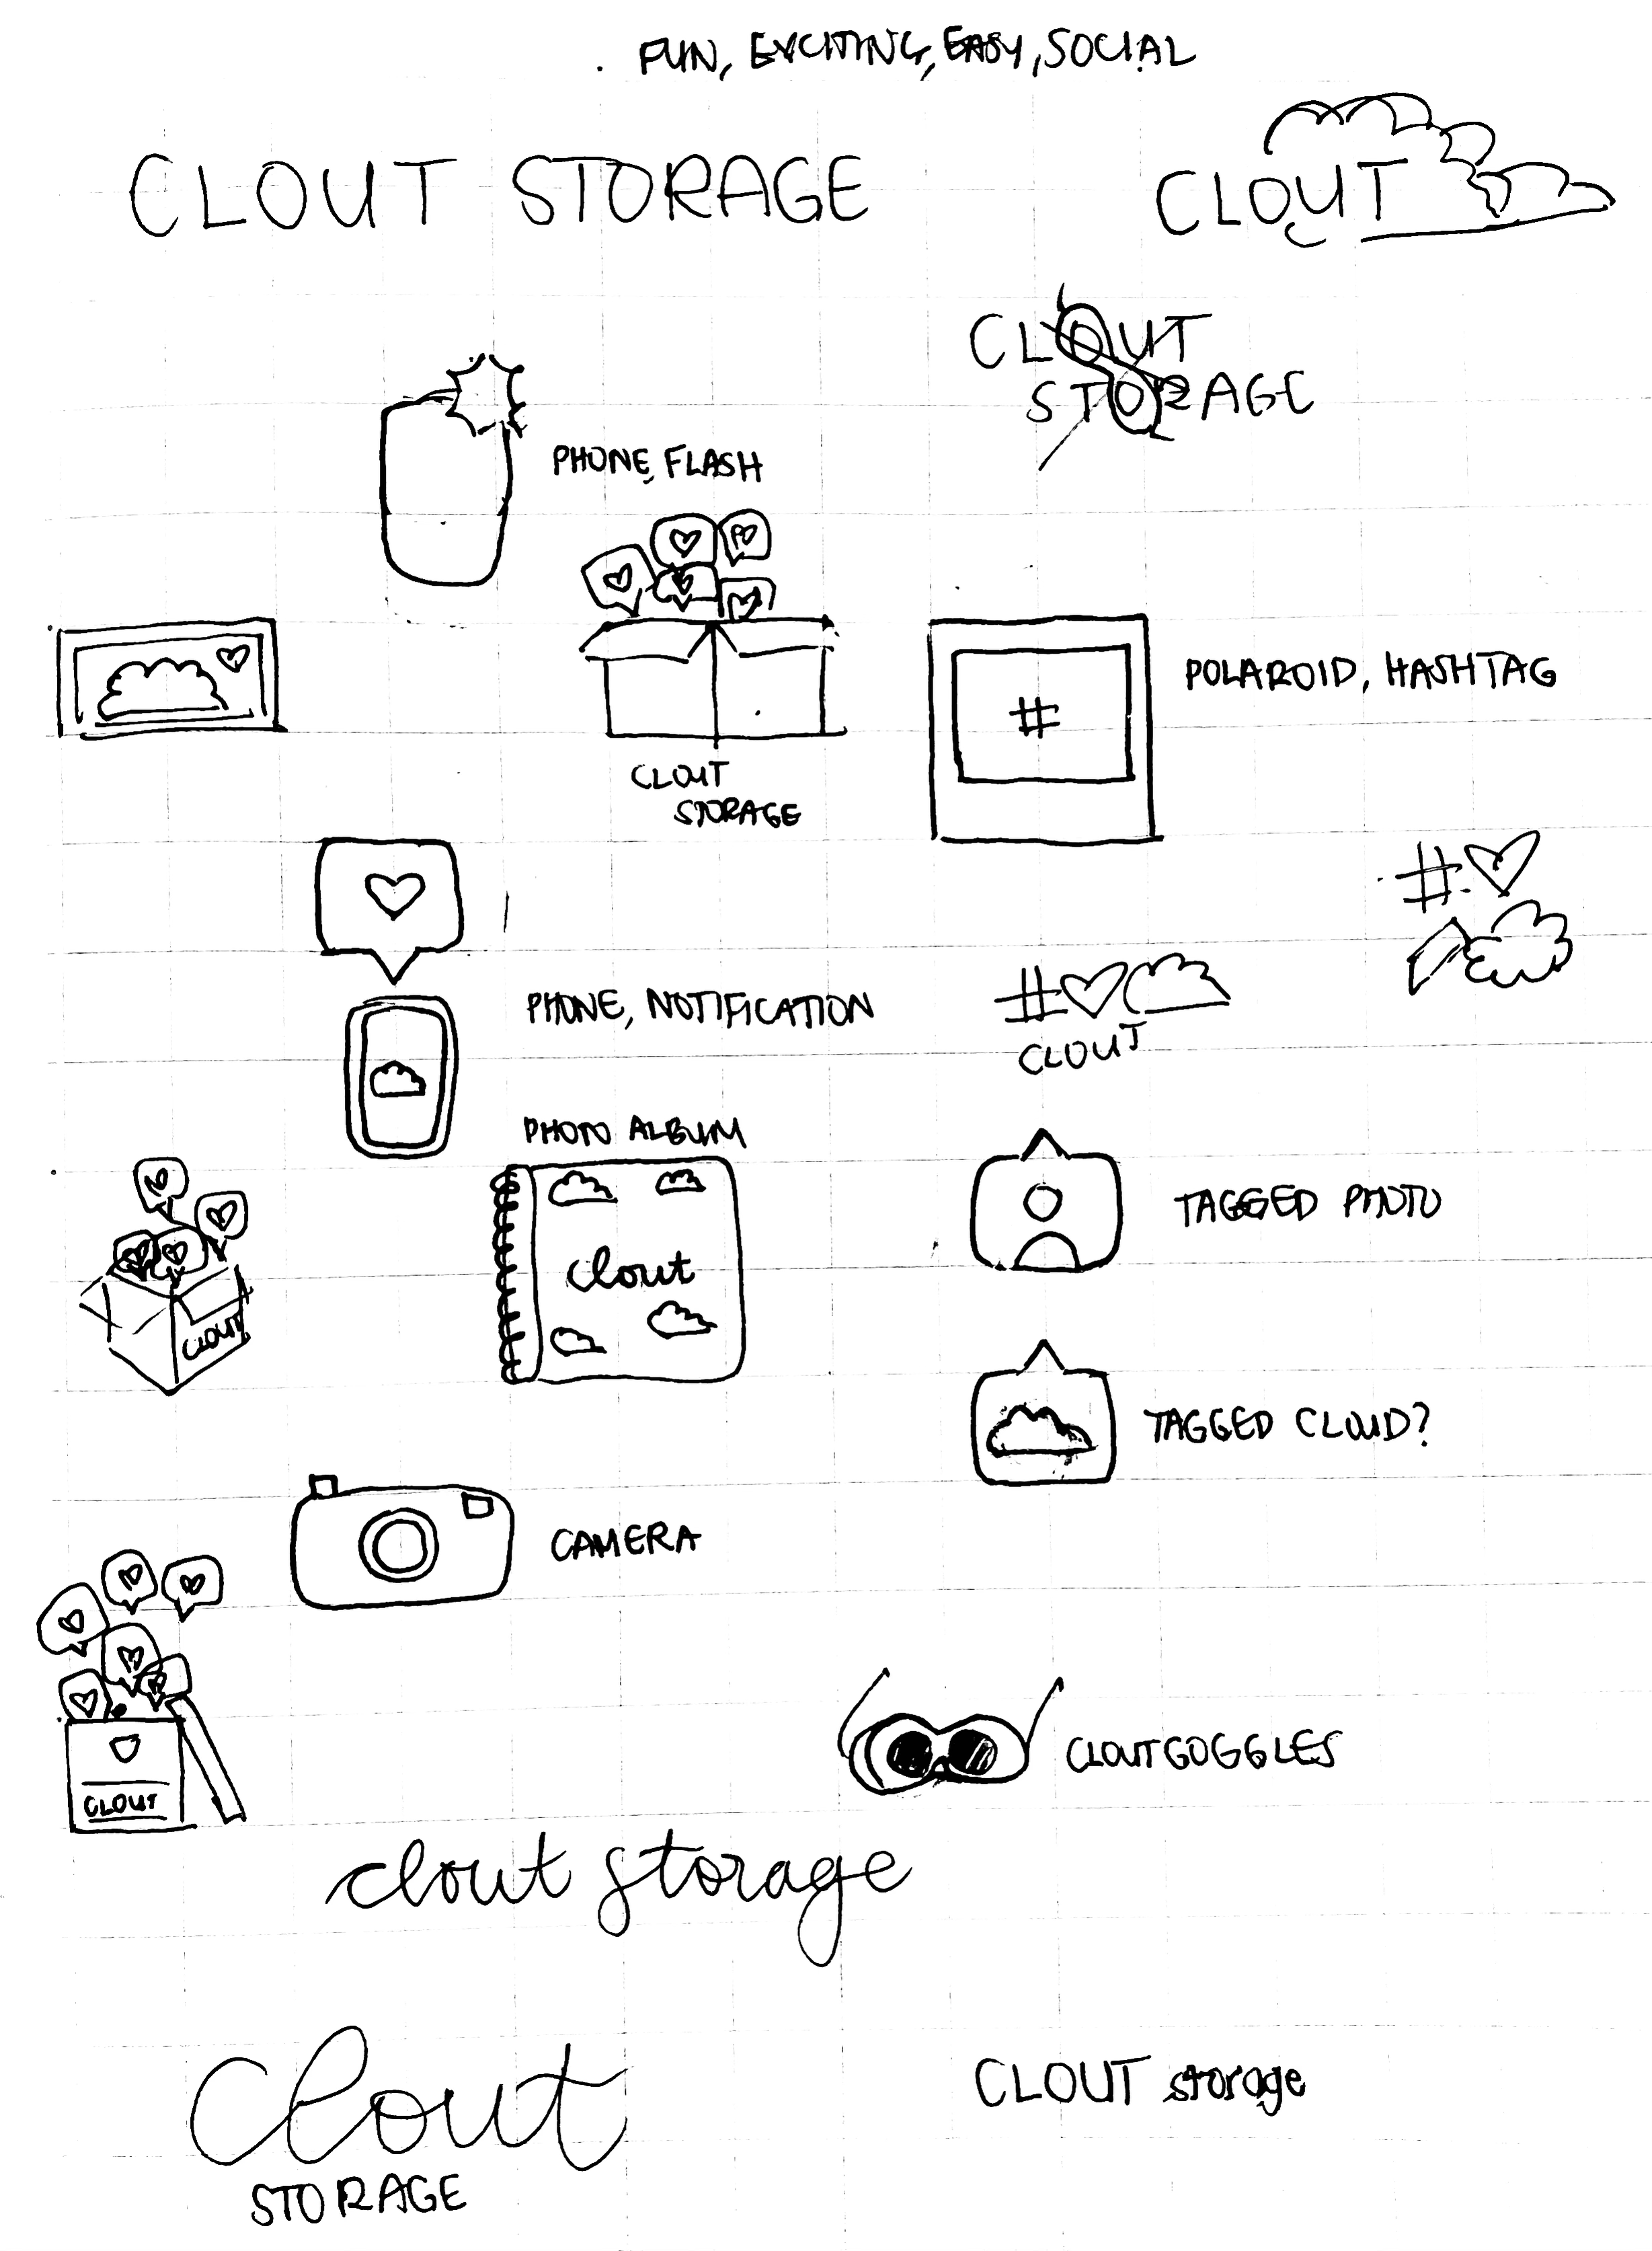 FUN, EXCITING, EASY, SOCIAL
CLOUT STORAGE
CLOUT
CLOUT
STORAGE
PHONE, FLASH
CLOUT
STORAGE
POLAROID, HASHTAG
#
#
PHONE, NOTIFICATION
#
CLOUT
PHOTO ALBUM
clout
TAGGED PHOTO
CLOUT
TAGGED CLOUD?
CAMERA
CLOUT GOGGLES
CLOUT
clout storage
Clout
STORAGE
CLOUT storage